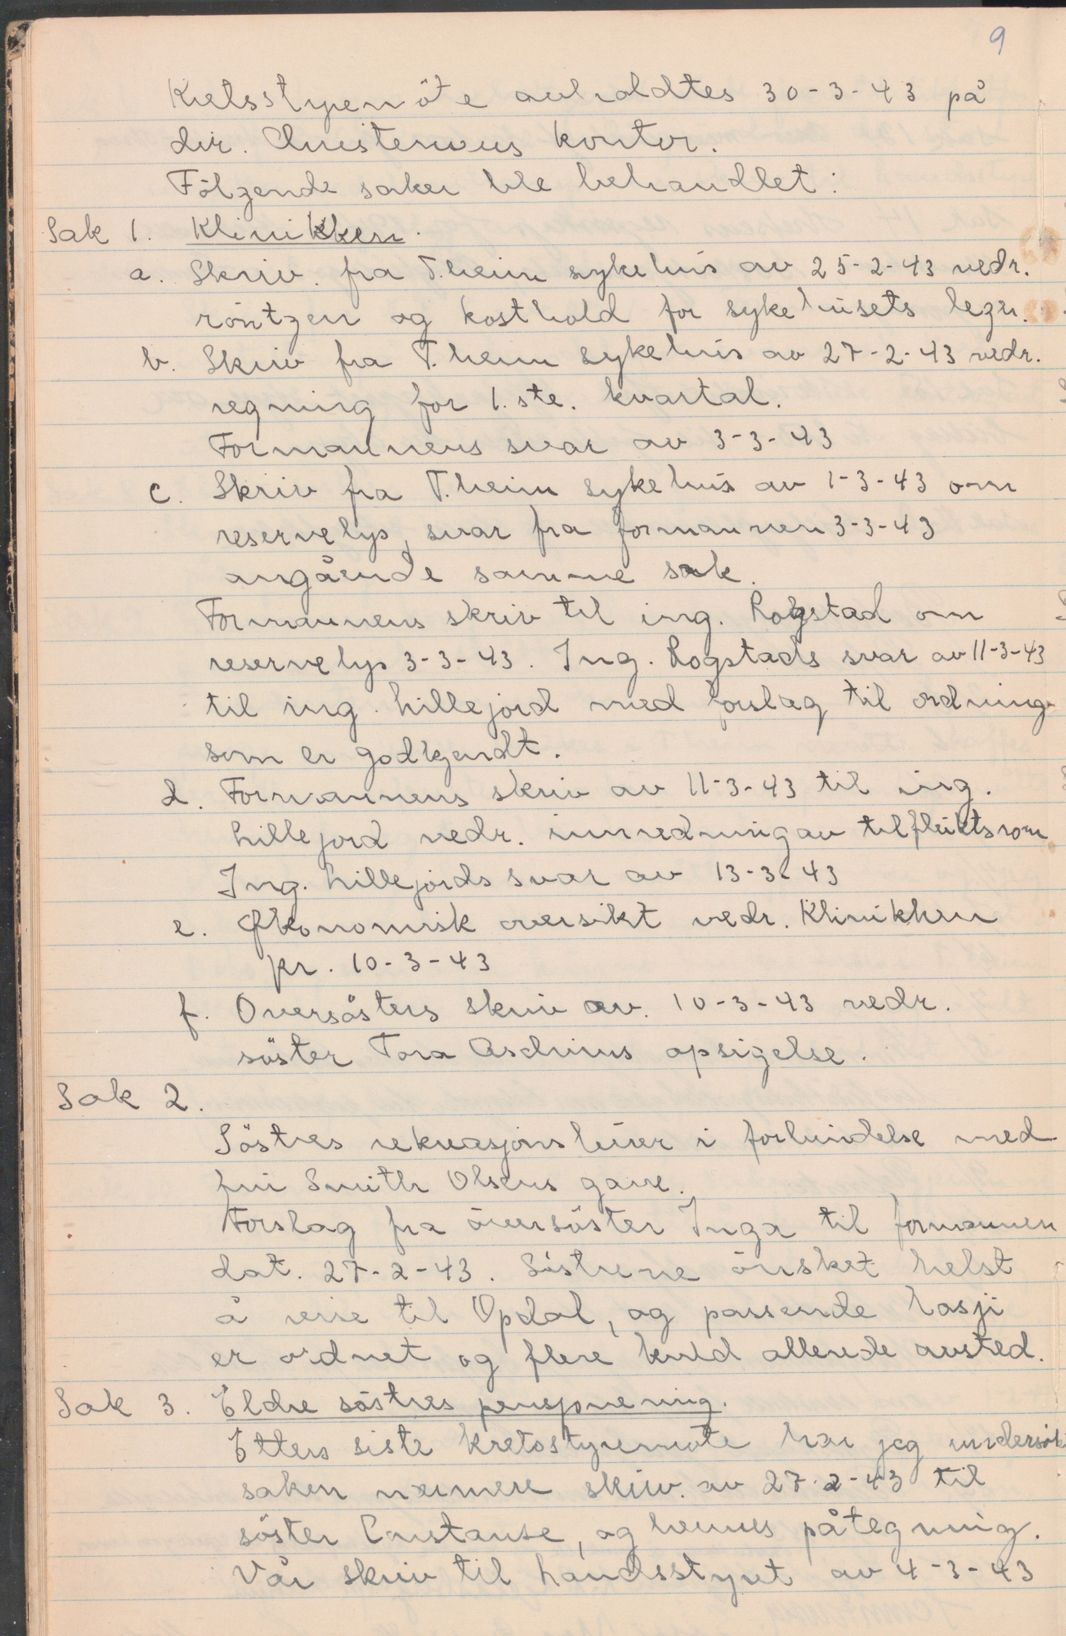 9
Kretsstyremöte avholdtes 30-3-43 på
dir. Christensens kontor.
Fölgende saker ble behandlet:
Sak 1. Klinikken.
a. Skriv. fra T.heim sykehus av 25-2-43 vedr.
röntgen og kosthold for sykehusets leger.
b. Skriv fra T.heim sykehus av 27-2-43 vedr.
regning for 1.ste. kvartal.
Formannens svar av 3-3-43
c. Skriv fra T.heim sykehus av 1-3-43 om
reservelys, svar fra formannen 3-3-43
angående samme sak.
Formannens skriv til ing. Rogstad om
reservelys 3-3-43. Ing. Rogstads svar av 11-3-43
til ing. Lillejord med forslag til ordning
som er godkjendt.
d. Formannens skriv av 11-3-43 til ing.
Lillejord vedr. innredning av tilfluktsrom
Ing. Lillejords svar av 13-3-43
e. Økonomisk oversikt vedr. Klinikken
pr. 10-3-43
f. Oversösters skriv av. 10-3-43 vedr.
söster Tora opsigelse.
Sak 2.
Söstres rekreasjonsleier i forbindelse med
fru Smith Olsens gave.
Forslag fra översöster Inga til formannen
dat. 27-2-43. Söstrene önsket helst
å reise til Opdal, og passende losji
er ordnet og flere kuld allerede avsted.
Sak 3. Eldre söstres pensjonering.
Etters siste kretsstyremöte har jeg undersök
saken nærmere skriv. av 27-2-43 til
söster Constanse, og hennes påtegning.
Vår skriv til landsstyret av 4-3-43